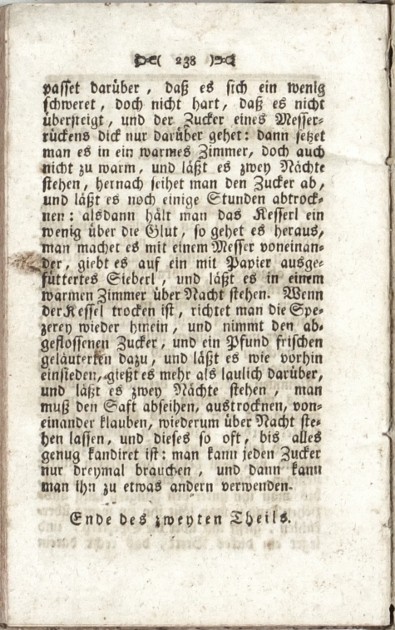 ( 238 )
passet darüber, daß es sich ein wenig
schweret, doch nicht hart, daß es nicht
übersteigt, und der Zucker eines Messer-
rückens dick nur darüber gehet: dann setzet
man es in ein warmes Zimmer, doch auch
nicht zu warm, und läßt es zwey Nächte
stehen, hernach seihet man den Zucker ab,
und läßt es noch einige Stunden abtrock-
nen: alsdann hält man das Kesserl ein
wenig über die Glut, so gehet es heraus,
man machet es mit einem Messer voneinan-
der, giebt es auf ein mit Papier ausge-
füttertes Sieberl, und läßt es in einem
warmen Zimmer über Nacht stehen. Wenn
der Kessel trocken ist, richtet man die Spe-
zerey wieder hinein, und nimmt den ab-
gestossenen Zucker, und ein Pfund frischen
geläuterten dazu, und läßt es wie vorhin
einsieden, gießt es mehr als laulich darüber,
und läßt es zwey Nächte stehen, man
muß den Saft abseihen, austrocknen, von-
einander klauben, wiederum über Nacht ste-
hen lassen, und dieses so oft, bis alles
genug kandiret ist: man kann jeden Zucker
nur dreymal brauchen, und dann kann
man ihn zu etwas andern verwenden.
Ende des zweyten Theils.